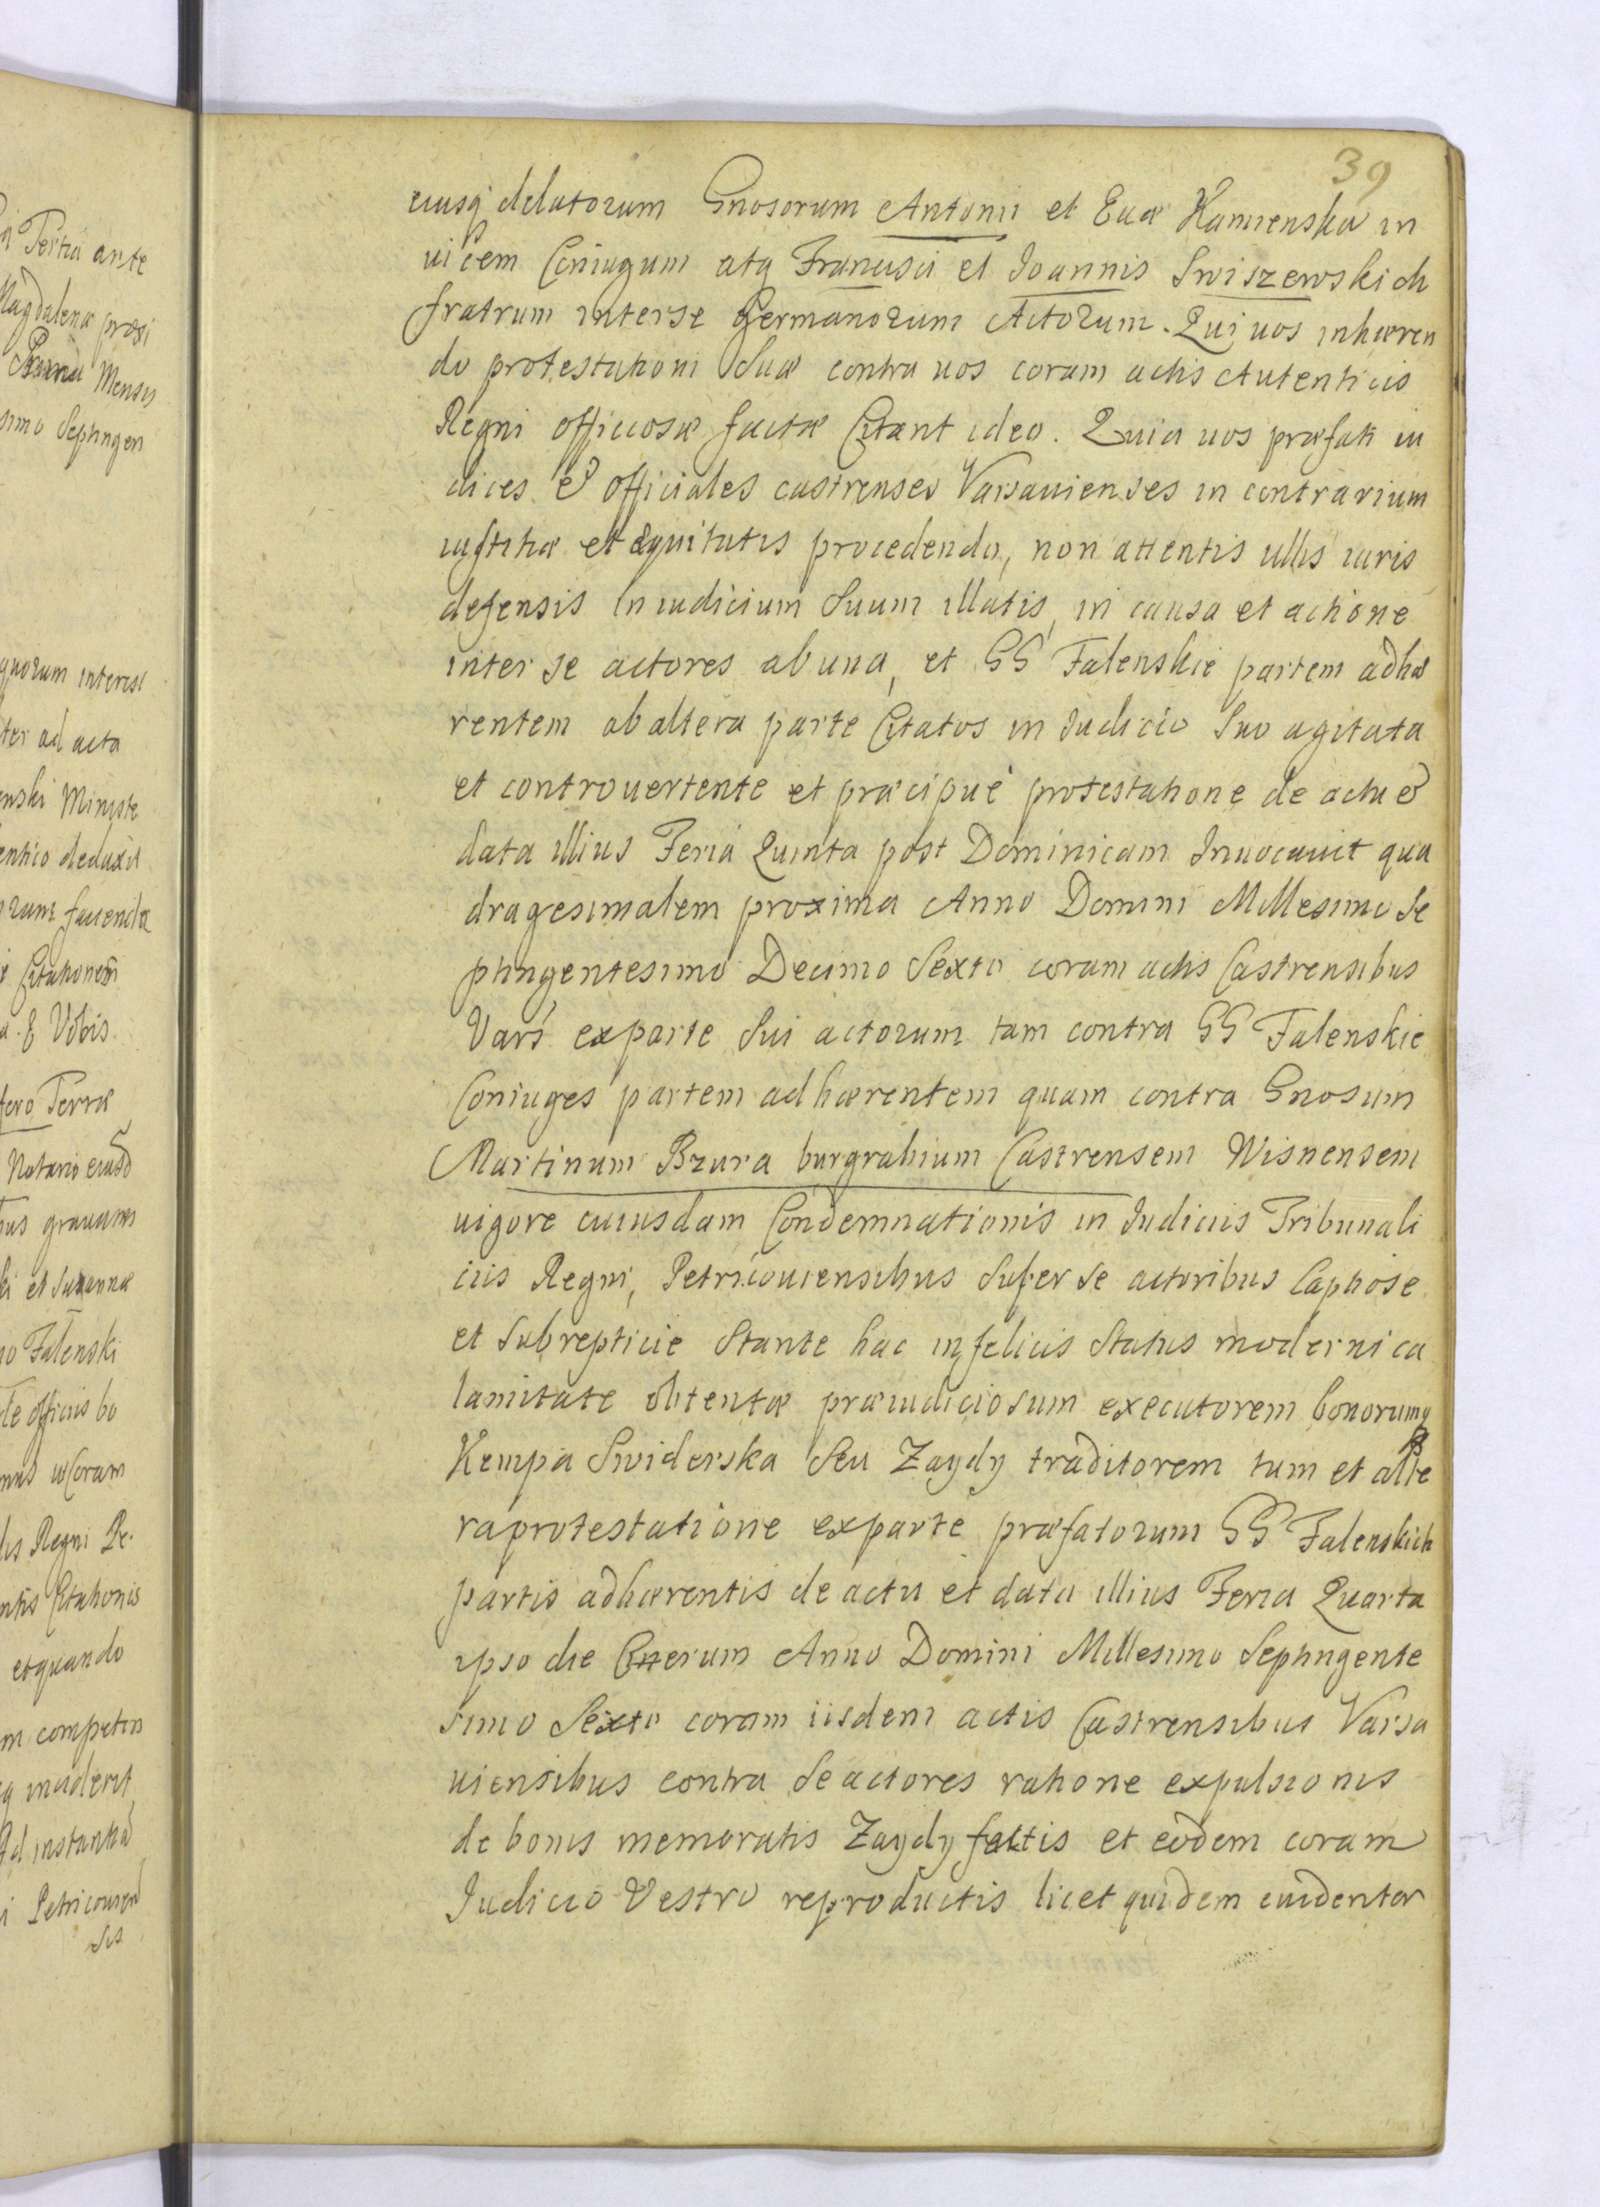 39
eiusq delatorum Gnosorum Antonii et Euæ Kamienska in
uicem Coniugum atq Francisci et Ioannis Swiszewskich
fratrum interse Germanorum Actorum. Qui uos inhæren
do protestationi Suæ contra uos coram actis Autenticis
Regni officiosæ factæ Citant ideo. Quia uos præfati iu
dices & officiales castrenses Varsauienses in contrarium
iustitiæ et Equitatis procedendo, non attentis ullis iuris
defensis In iudicium Suum illatis, in causa et actione
inter se actores ab una, et GG Falenskie partem adhæ
rentem ab altera parte Citatos in Iudicio Suo agitata
et controuertente et præcipuè protestatione de actu &
data illius Feria Quinta post Dominicam Inuocauit qua
dragesimalem proxima Anno Domini Millesimo Se
ptingentesimo Decimo Sexto coram actis Castrensibus
Vars exparte Sui actorum tam contra GG Falenskie
Coniuges partem adhærentem quam contra Gnosum
Martinum Bzura burgrabium Castrensem Wisnensem
uigore cuiusdam Condemnationis in Iudiciis Tribunali
ciis Regni, Petricouiensibus Super Se actoribus Captiose
et Subrepticie Stante hac infelicis Status moderni ca
lamitate obtentæ præiudiciosum executorem bonorumq
Kempa Swiderska Seu Zaydy traditorem tum et alte
raprotestatione exparte præfatorum GG Falenskich
partis adhærentis de actu et data illius Feria Quarta
ipso die Cinerum Anno Domini Millesimo Septingente
simo Sexto coram iisdem actis Castrensibus Varsa
uiensibus contra Se actores ratione expulsionis
de bonis memoratis Zaydy factis et eodem coram
Iudicio Vestro reproductis licet quidem euidenter
Tertia ante
Magdalenæ proxi
Mensis
simo Septingen
quorum interest
ter ad acta
enski Ministe
entico deduxit
rum facienda
Citationem
a. & Vobis.
fero Terræ
Notario eiusd
bus grauams
ki et Susannæ
no Falenski
te officiis bo
nus coram
lis Regni Pe.
ntis Citationis
et quando
m competen
q inciderit
Ad instantia
i Petricouien
sis